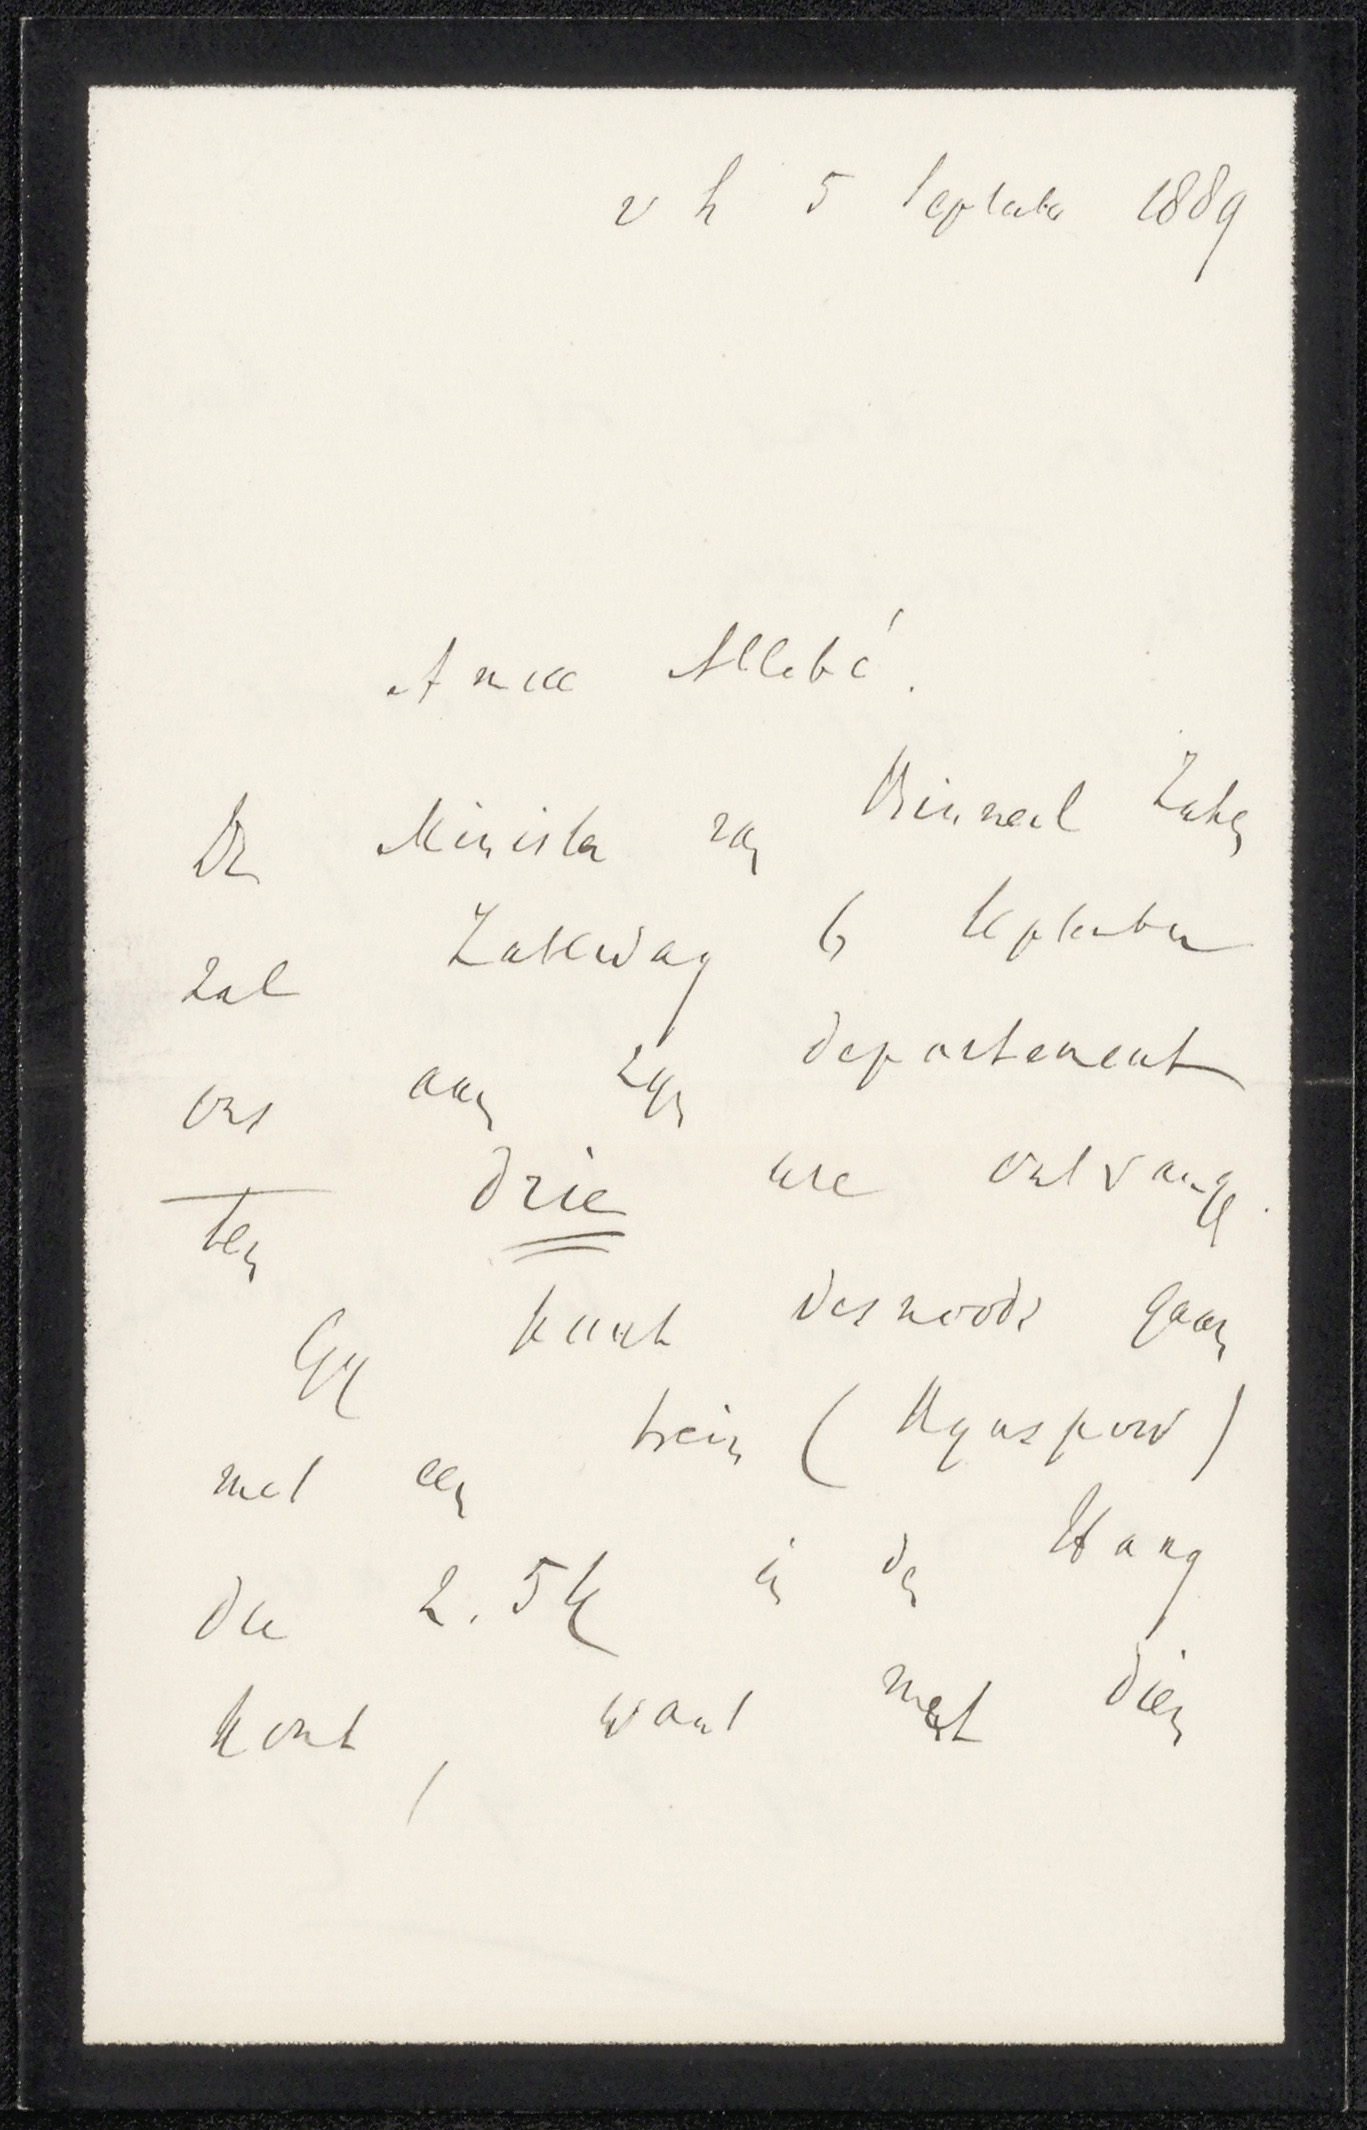 v h 5 September 1889
Amice Allebé.
De Minister van Binnenl Zaken
zal Zaterdag 6 September
ons aan zijn departement
ten drie ure ontvangen.
Gij kunt desnoods gaan
met een trein (Rynspoor)
die 2.54 in den Haag
komt, want met dien